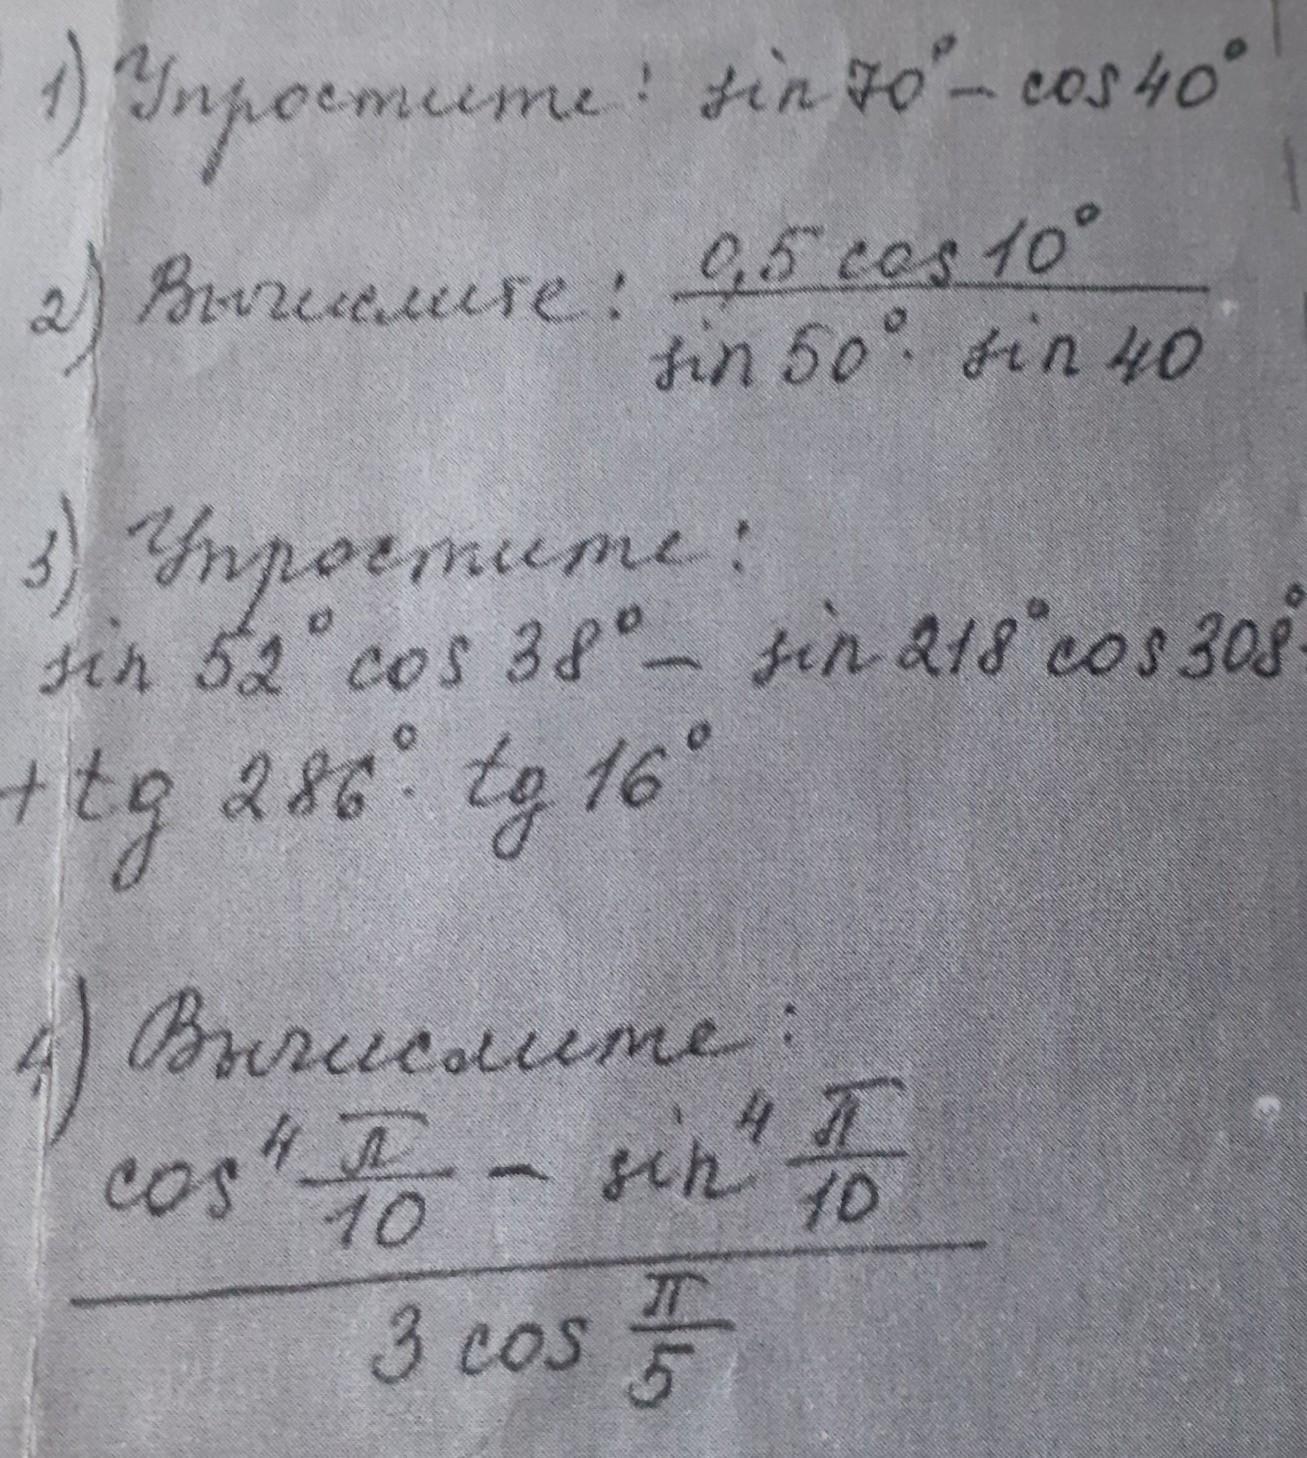 1) Упростите: sin 70° - cos 40°
2) Вычислите: 0,5 cos 10°
sin 50° · sin 40
3) Упростите:
sin 52° cos 38° - sin 218° cos 308°
+ tg 286° · tg 16°
4) Вычислите:
cos⁴ π/10 - sin⁴ π/10
3 cos π/5